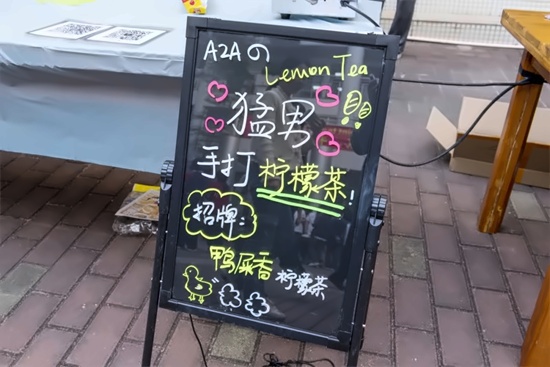 A2Aの
Lemon Tea
猛男
手打柠檬茶!
招牌:
鸭屎香柠檬茶